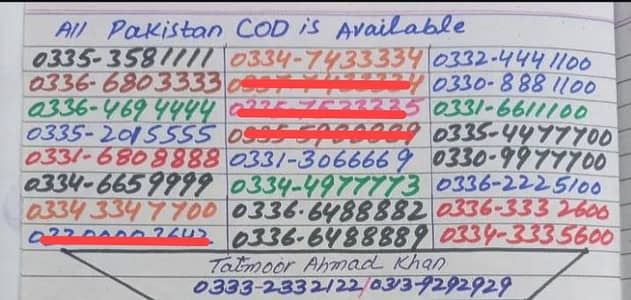 All Pakistan COD is Available
0335-3581111 0334-7433334 0332-4441100
0336-6803333 0330-8881100
0336-4694444 0331-6611100
0335-2015555 0335-4477700
0331-6808888 0331-3066669 0330-9977700
0334-6659999 0334-4977773 0336-2225100
0334 334 7700 0336-6488882 0336-333 2600
0336-6488889 0334-3335600
Taimoor Ahmad Khan
0333-2332122/0313-9292929